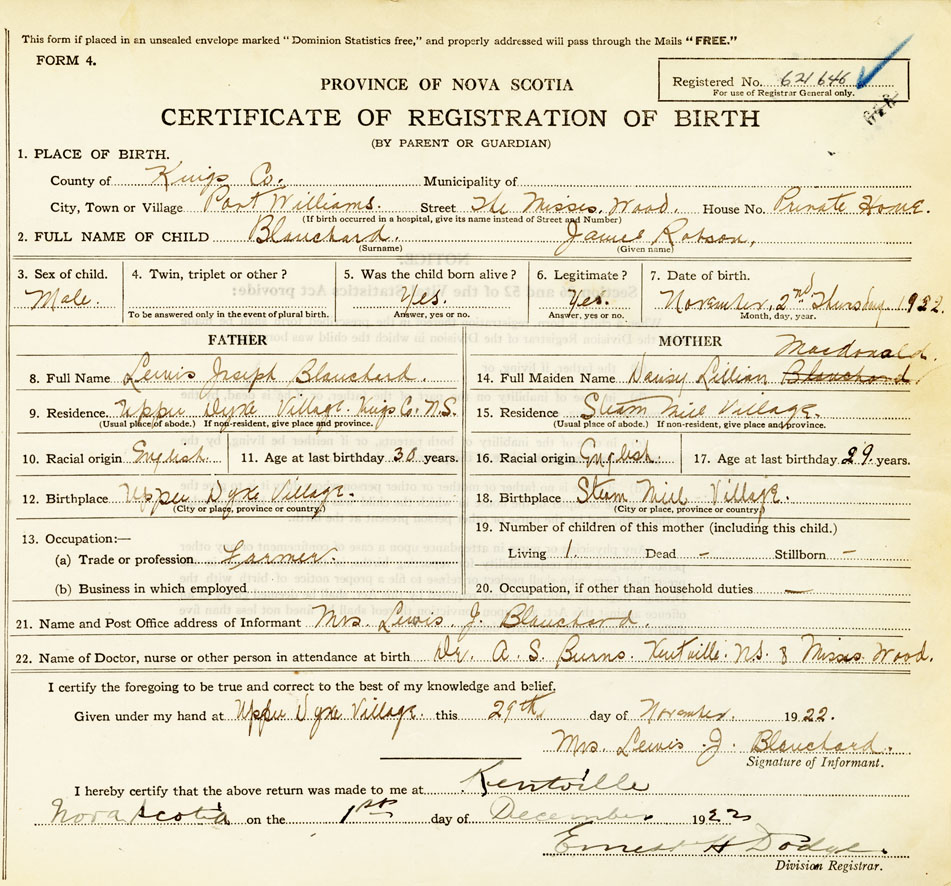 This form if placed in an unsealed envelope marked "Dominion Statistics free," and properly addressed will pass through the Mails "FREE."
FORM 4.
Registered No. 621646
For use of Registrar General only.
PROVINCE OF NOVA SCOTIA
CERTIFICATE OF REGISTRATION OF BIRTH
(BY PARENT OR GUARDIAN)
1. PLACE OF BIRTH.
County of Kings Co. Municipality of
City, Town or Village Port Williams. Street The Misses. Wood. House No. Private Home.
(If birth occurred in a hospital, give its name instead of Street and Number)
2. FULL NAME OF CHILD Blanchard. James Robson,
(Surname) (Given name)
3. Sex of child. 4. Twin, triplet or other? 5. Was the child born alive? 6. Legitimate? 7. Date of birth.
Male. Yes. Yes. November, 2nd Thursday 1922.
To be answered only in the event of plural birth. Answer, yes or no. Answer, yes or no. Month, day, year.
FATHER MOTHER
Macdonald.
8. Full Name Lewis Joseph Blanchard. 14. Full Maiden Name Daisy Lillian Blanchard
9. Residence. Upper Dyke Village. Kings Co. N.S. 15. Residence Steam Mill Village.
(Usual place of abode.) If non-resident, give place and province. (Usual place of abode.) If non-resident, give place and province.
10. Racial origin English. 11. Age at last birthday 30 years. 16. Racial origin English. 17. Age at last birthday 29 years.
12. Birthplace Upper Dyke Village. 18. Birthplace Steam Mill Village.
(City or place, province or country) (City or place, province or country)
13. Occupation:— 19. Number of children of this mother (including this child.)
(a) Trade or profession Farmer. Living 1. Dead - Stillborn -
(b) Business in which employed 20. Occupation, if other than household duties —
21. Name and Post Office address of Informant Mrs Lewis J. Blanchard.
22. Name of Doctor, nurse or other person in attendance at birth Dr. A. S. Burns. Kentville. N.S. & Misses. Wood.
I certify the foregoing to be true and correct to the best of my knowledge and belief.
Given under my hand at Upper Dyke Village. this 29th day of November. 1922.
Mrs. Lewis J. Blanchard.
Signature of Informant.
I hereby certify that the above return was made to me at Kentville
Nova Scotia on the 1st day of December 1922
Ernest H Dodge.
Division Registrar.